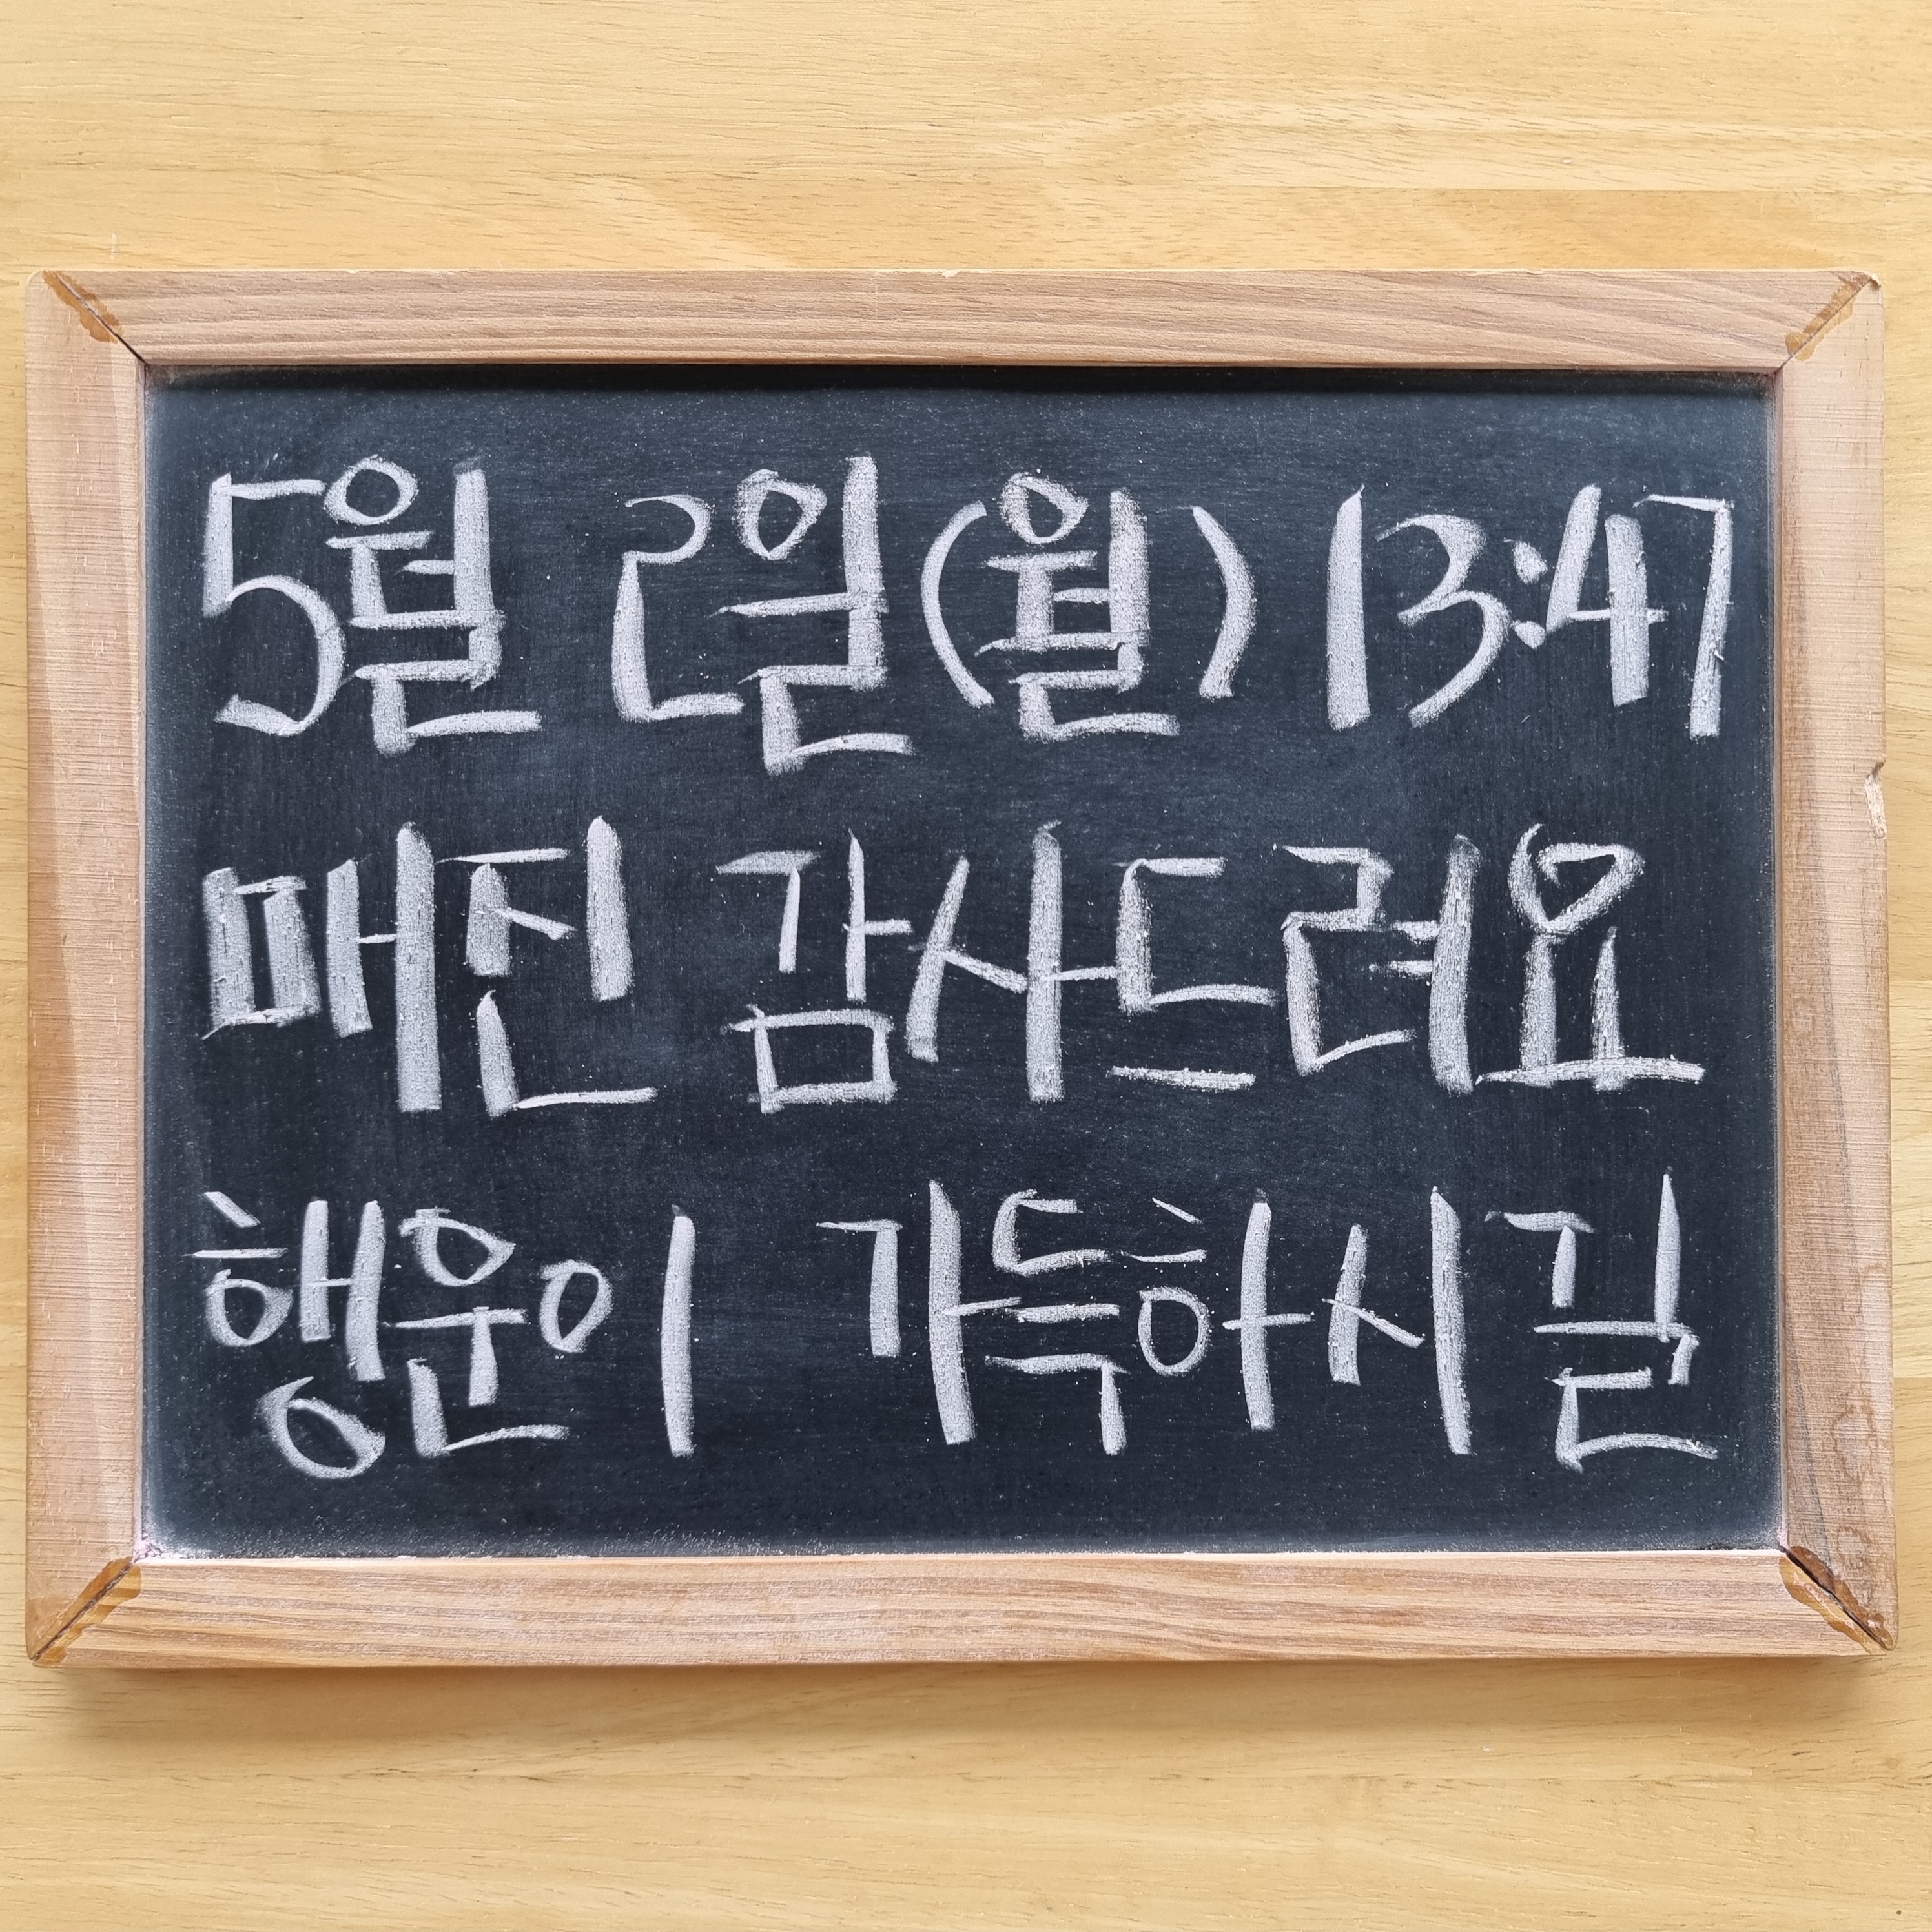 5월 2일(월) 13:47
매진 감사드려요
행운이 가득하시길